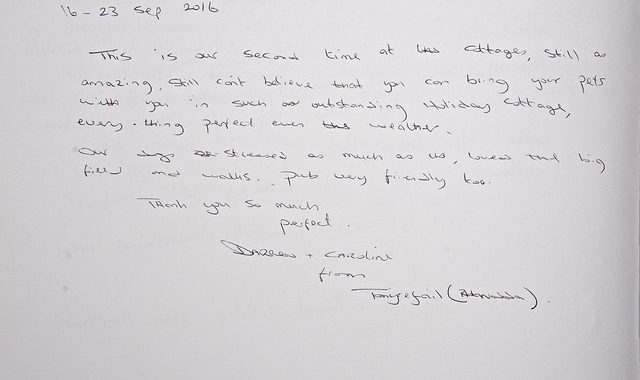 16 - 23 Sep 2016
This is our second time at the cottages, still as
amazing. Still can't believe that you can bring your pets
with you in such an outstanding Holiday Cottage,
every-thing perfect even the weather.
Our dogs stressed as much as us, loved the big
field and walks. Pub very friendly too.
Thank you so much
perfect.
Darren + Caroline
from
Tonyrefail ( ).